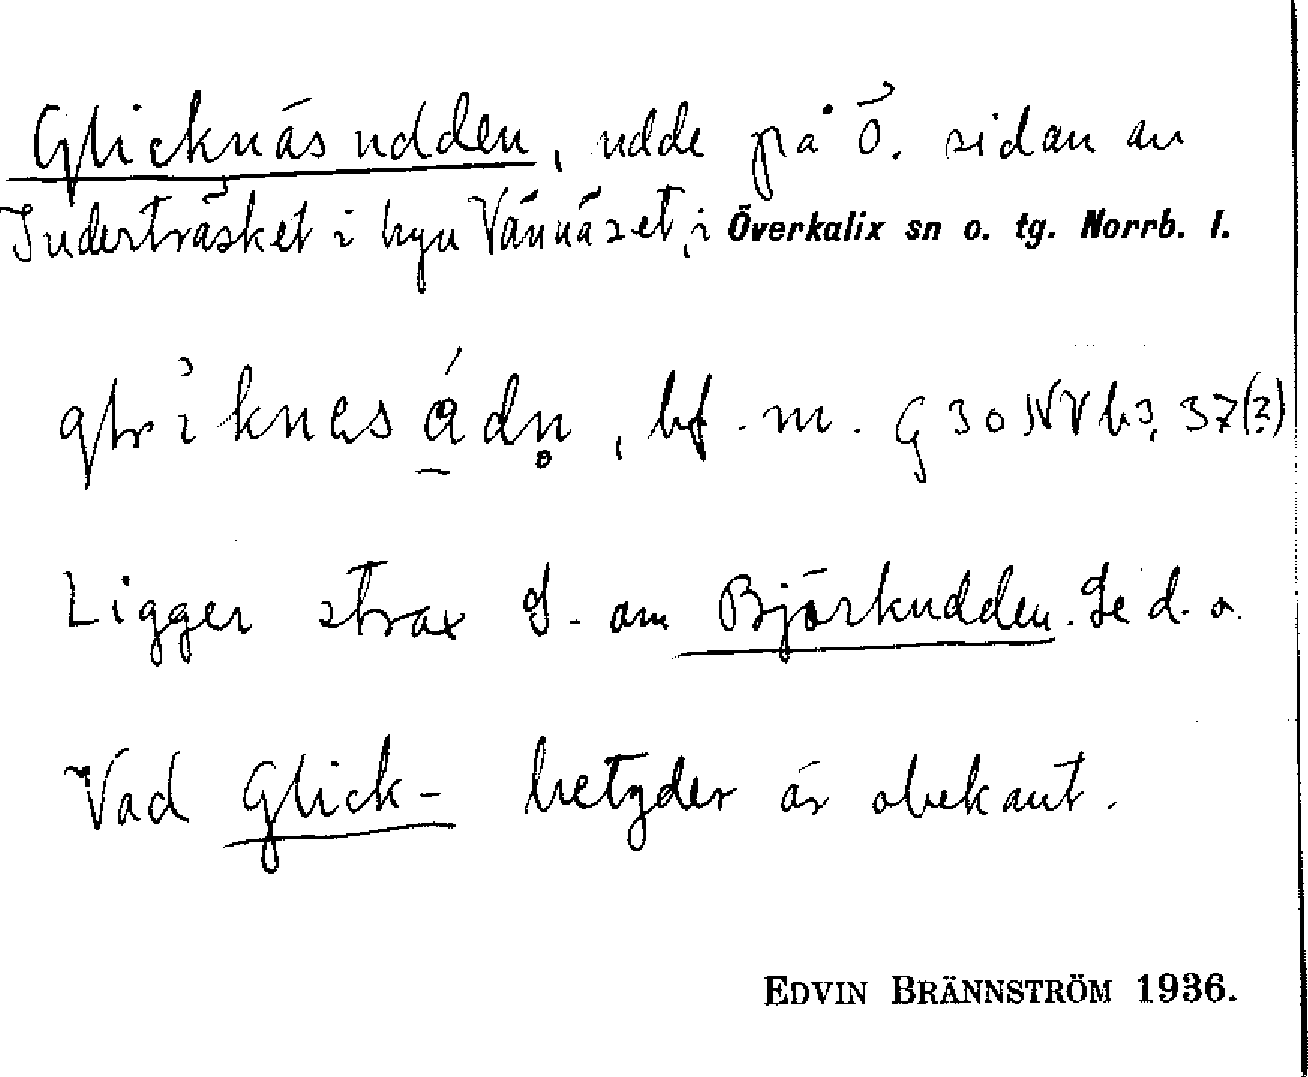 Glicknäsudden, udde på ö. sidan av
Inderträsket i byn Vännäset, i Överkalix sn o. tg. Norrb. l.
bf. m. G 30 NV b3, 37(?)
Ligger strax S. om Björkudden. Se d. o.
Vad Glick- betyder är obekant.
EDVIN BRÄNNSTRÖM 1936.